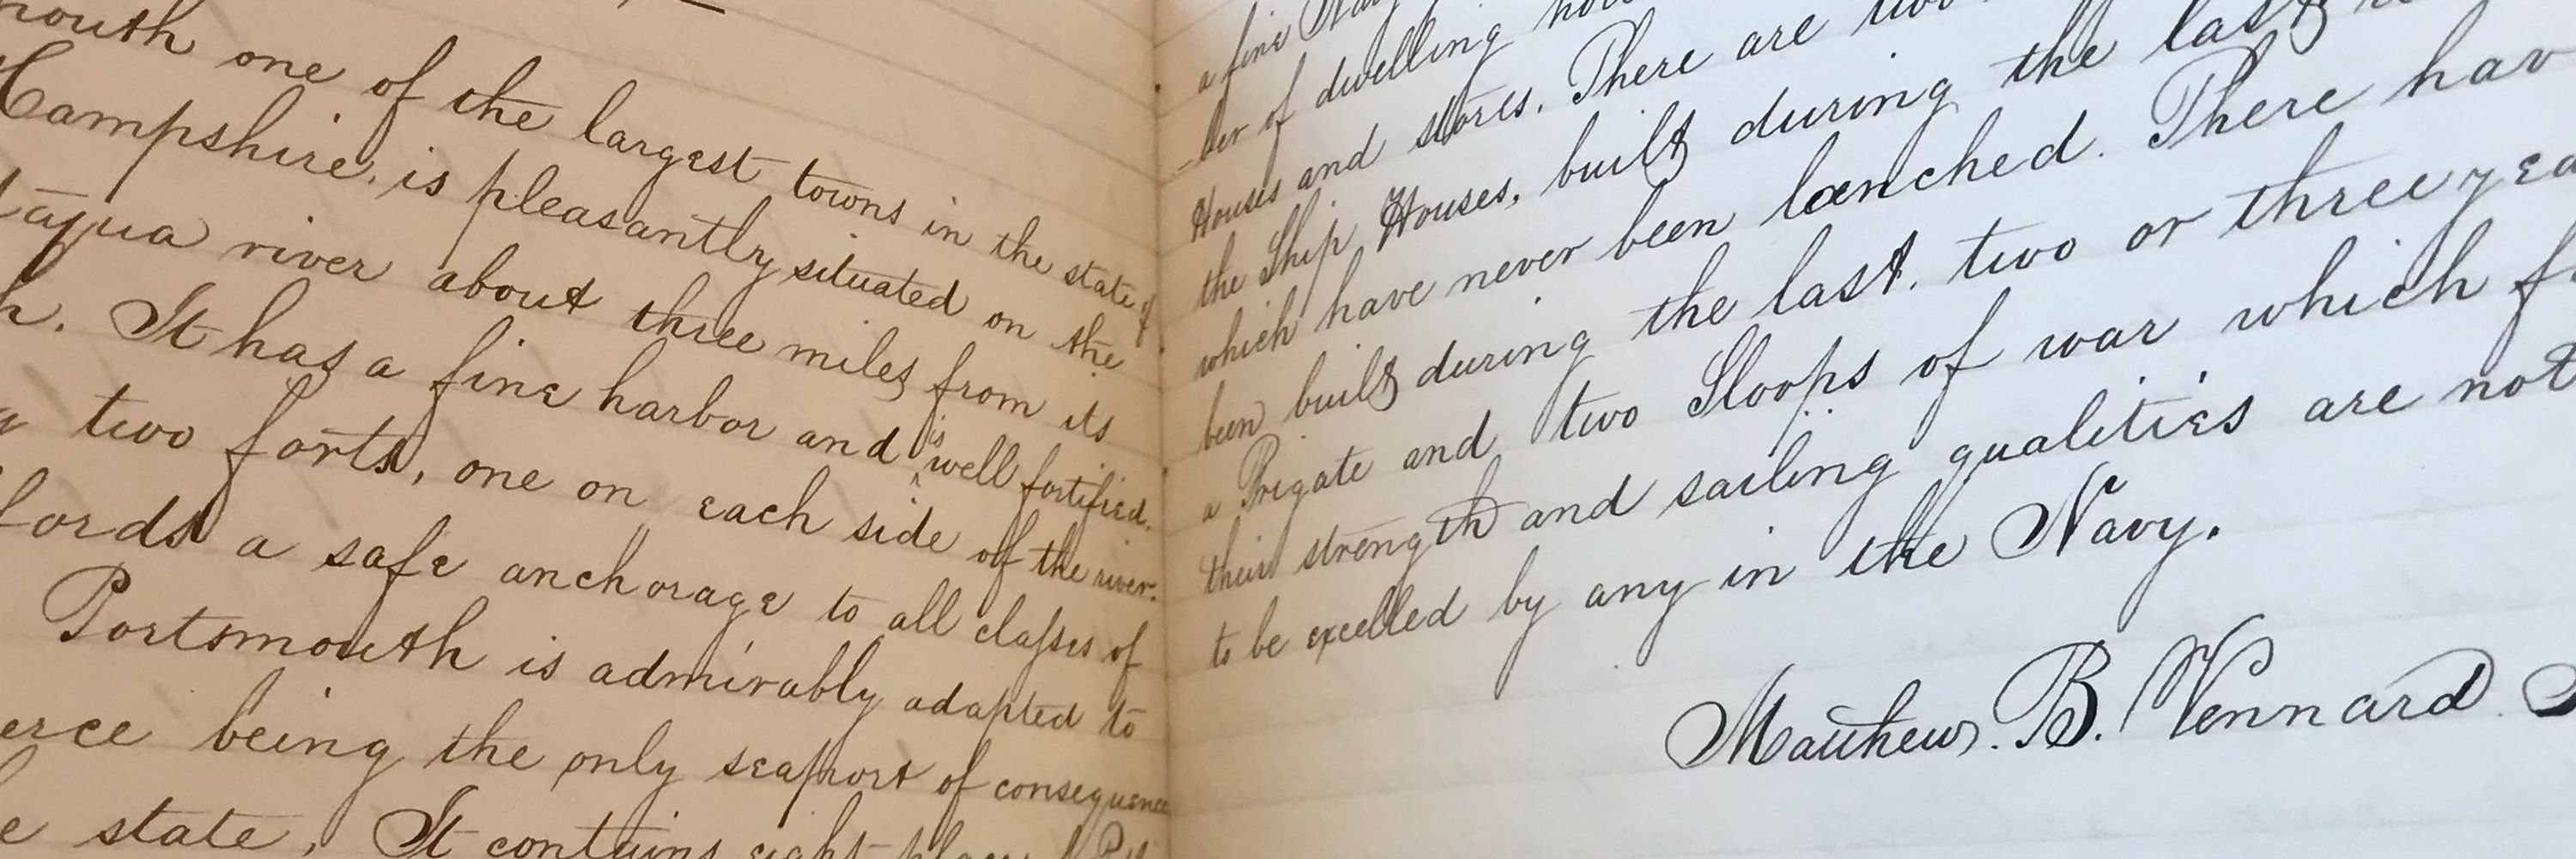 mouth one of the largest towns in the state of
Hampshire, is pleasantly situated on the
taqua river about three miles from its
h. It has a fine harbor and is well fortified.
two forts, one on each side of the river.
fords a safe anchorage to all classes of
Portsmouth is admirably adapted to
erce being the only seaport of consequence
e state, It contains eight
a fine Navy
ber of dwelling hou
Houses and stores. There are two
the Ship Houses, built during the last
which have never been lanched. There hav
been built during the last. two or three yea
a Frigate and two Sloops of war which f
their strength and sailing qualities are not
to be excelled by any in the Navy.
Matthew. B. Vennard